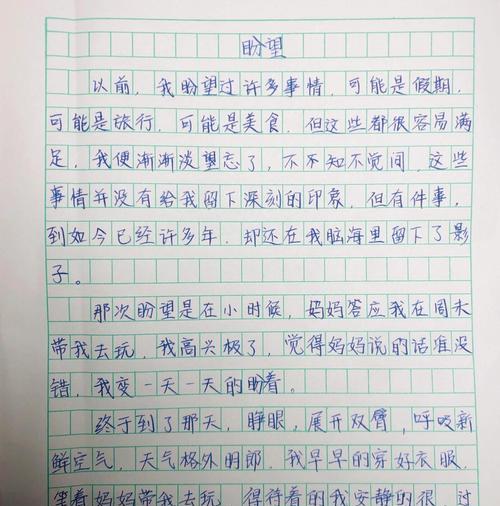 盼望
以前，我盼望过许多事情，可能是假期，
可能是旅行，可能是美食，但这些都很容易满
足，我便渐渐淡望忘了，不不知不觉间，这些
事情并没有给我留下深刻的印象，但有件事，
到如今已经许多年，却还在我脑海里留下了影
子。
那次盼望是在小时候，妈妈答应我在周末
带我去玩，我高兴极了，觉得妈妈说的话准没
错，我变一天一天的盼着。
终于到了那天，睁眼，展开双臂，呼吸新
鲜空气，天气格外明郎，我早早的穿好衣服，
等着妈妈带我去玩，得待着的我安静的很，过